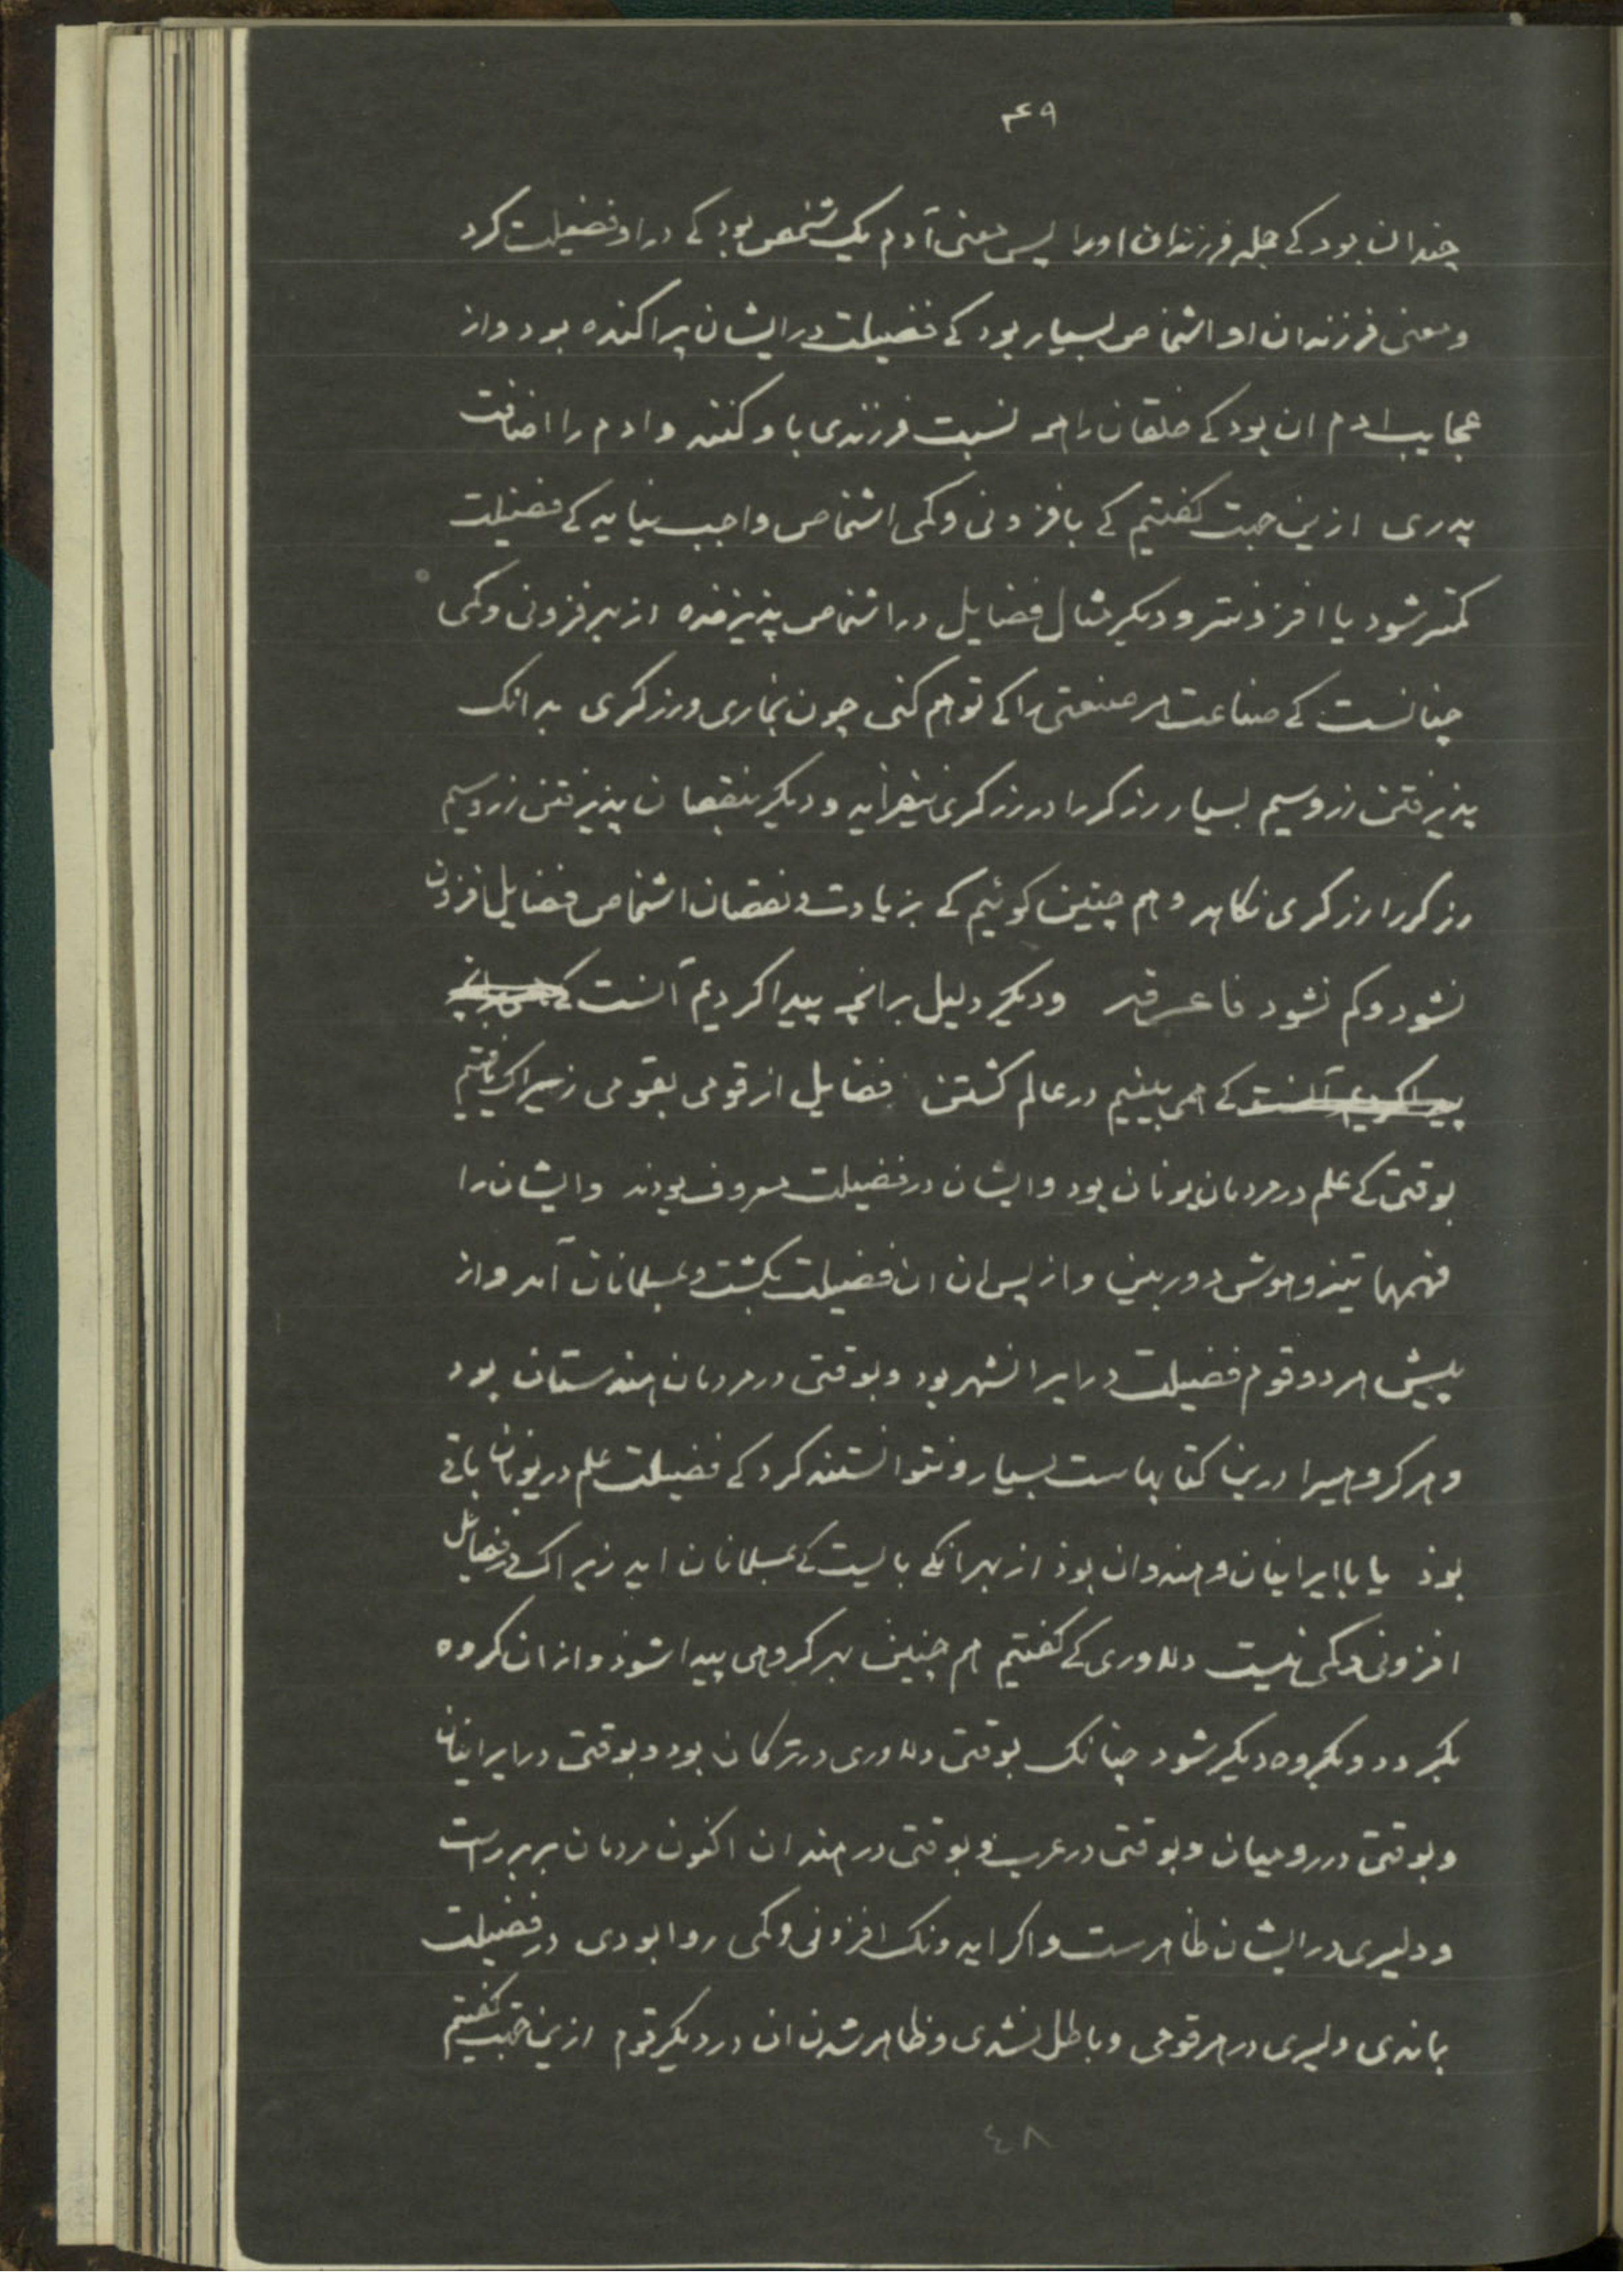 ۴۹
چندان بود کے جمله فرزندان اورا پس معنی آدم یک شخص بود کے در او فضیلت کرد
و معنی فرزندان او اشخاص بسیار بود کے فضیلت در ایشان پراکنده بود و از
عجایب ادم ان بود کے خلقان را همه نسبت فرزندی با او کنند و ادم را اضافت
پدری ازین جهت کفتیم کے بافزونی و کمی اشخاص واجب نیاید کے فضیلت
کمتر شود یا افزونتر و دیکر مثال فضایل در اشخاص پذیرفده از بهر فزونی و کمی
چنانست کے صناعت هر صنعتی را کے توهم کنی چون نجاری و زرکری بدانک
پذیرفتن زر و سیم بسیار زرکر را در زرکری نیفزاید و دیکر بنقصان پذیرفتن زر و سیم
زرکر را زرکری نکاهد و هم چنین کوئیم کے بزیادت و نقصان اشخاص فضایل افزون
نشود و کم نشود فاعرفه و دیکر دلیل برانچه پیدا کردیم آنست کے
پیدا کردیم آنست کے همی بینیم در عالم کشتن فضایل از قومی بقومی زیراک یافتیم
بوقتی کے علم در مردمان یونان بود و ایشان در فضیلت معروف بودند و ایشان را
فهمها تیز و هوش دوربین و از پس ان ان فضیلت بکشت و بمسلمانان آمد و از
پیش هر دو قوم فضیلت در ایرانشهر بود و بوقتی در مردمان هندستان بود
و هر کروهیرا درین کتابهاست بسیار و نتوانستند کرد کے فضیلت علم در یونان باقی
بوذ یا با ایرانیان و هندوان بوذ از بهر انکے بایست کے بمسلمانان اید زیراک در فضایل
افزونی و کمی نیست دلاوری کے کفتیم هم چنین بهر کروهی پیدا شوذ و از ان کروه
بکردد و بکروه دیکر شود چنانک بوقتی دلاوری در ترکان بود و بوقتی در ایرانیان
و بوقتی در رومیان و بوقتی در عرب و بوقتی در هندان اکنون مردمان بربرراست
و دلیری در ایشان ظاهرست و اکر ایدونک افزونی و کمی روا بودی در فضیلت
بماندی دلیری در هر قومی و باطل نشدی و ظاهر شدن ان در دیکر قوم ازین جهت کفتیم
٤٨